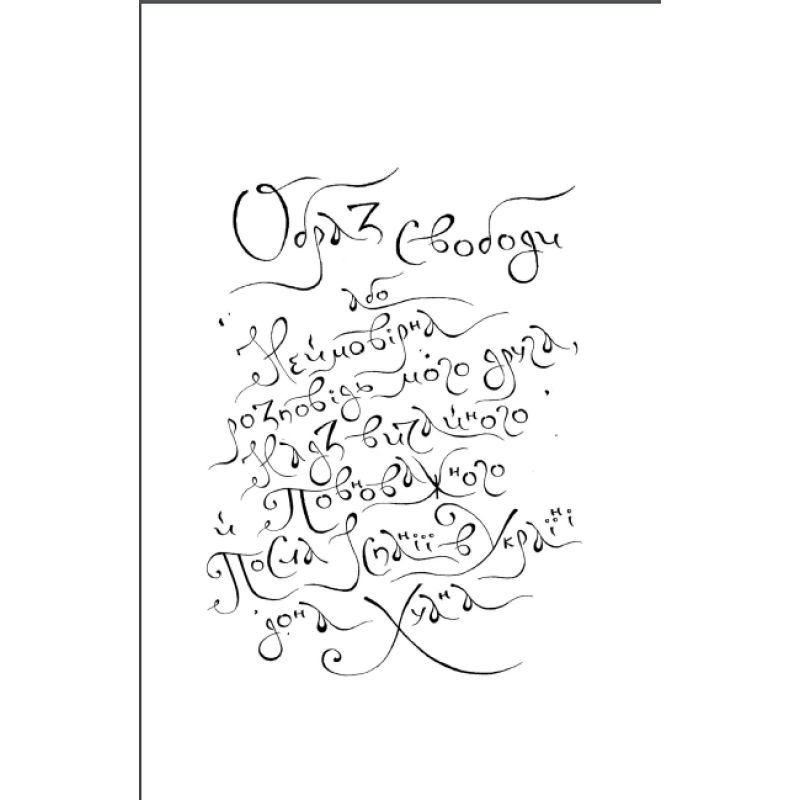 Образ Свободи
або
Неймовірна
розповідь мого друга,
Надзвичайного
Повноважного
й
Посла Іспанії в Україні
дона Хуана